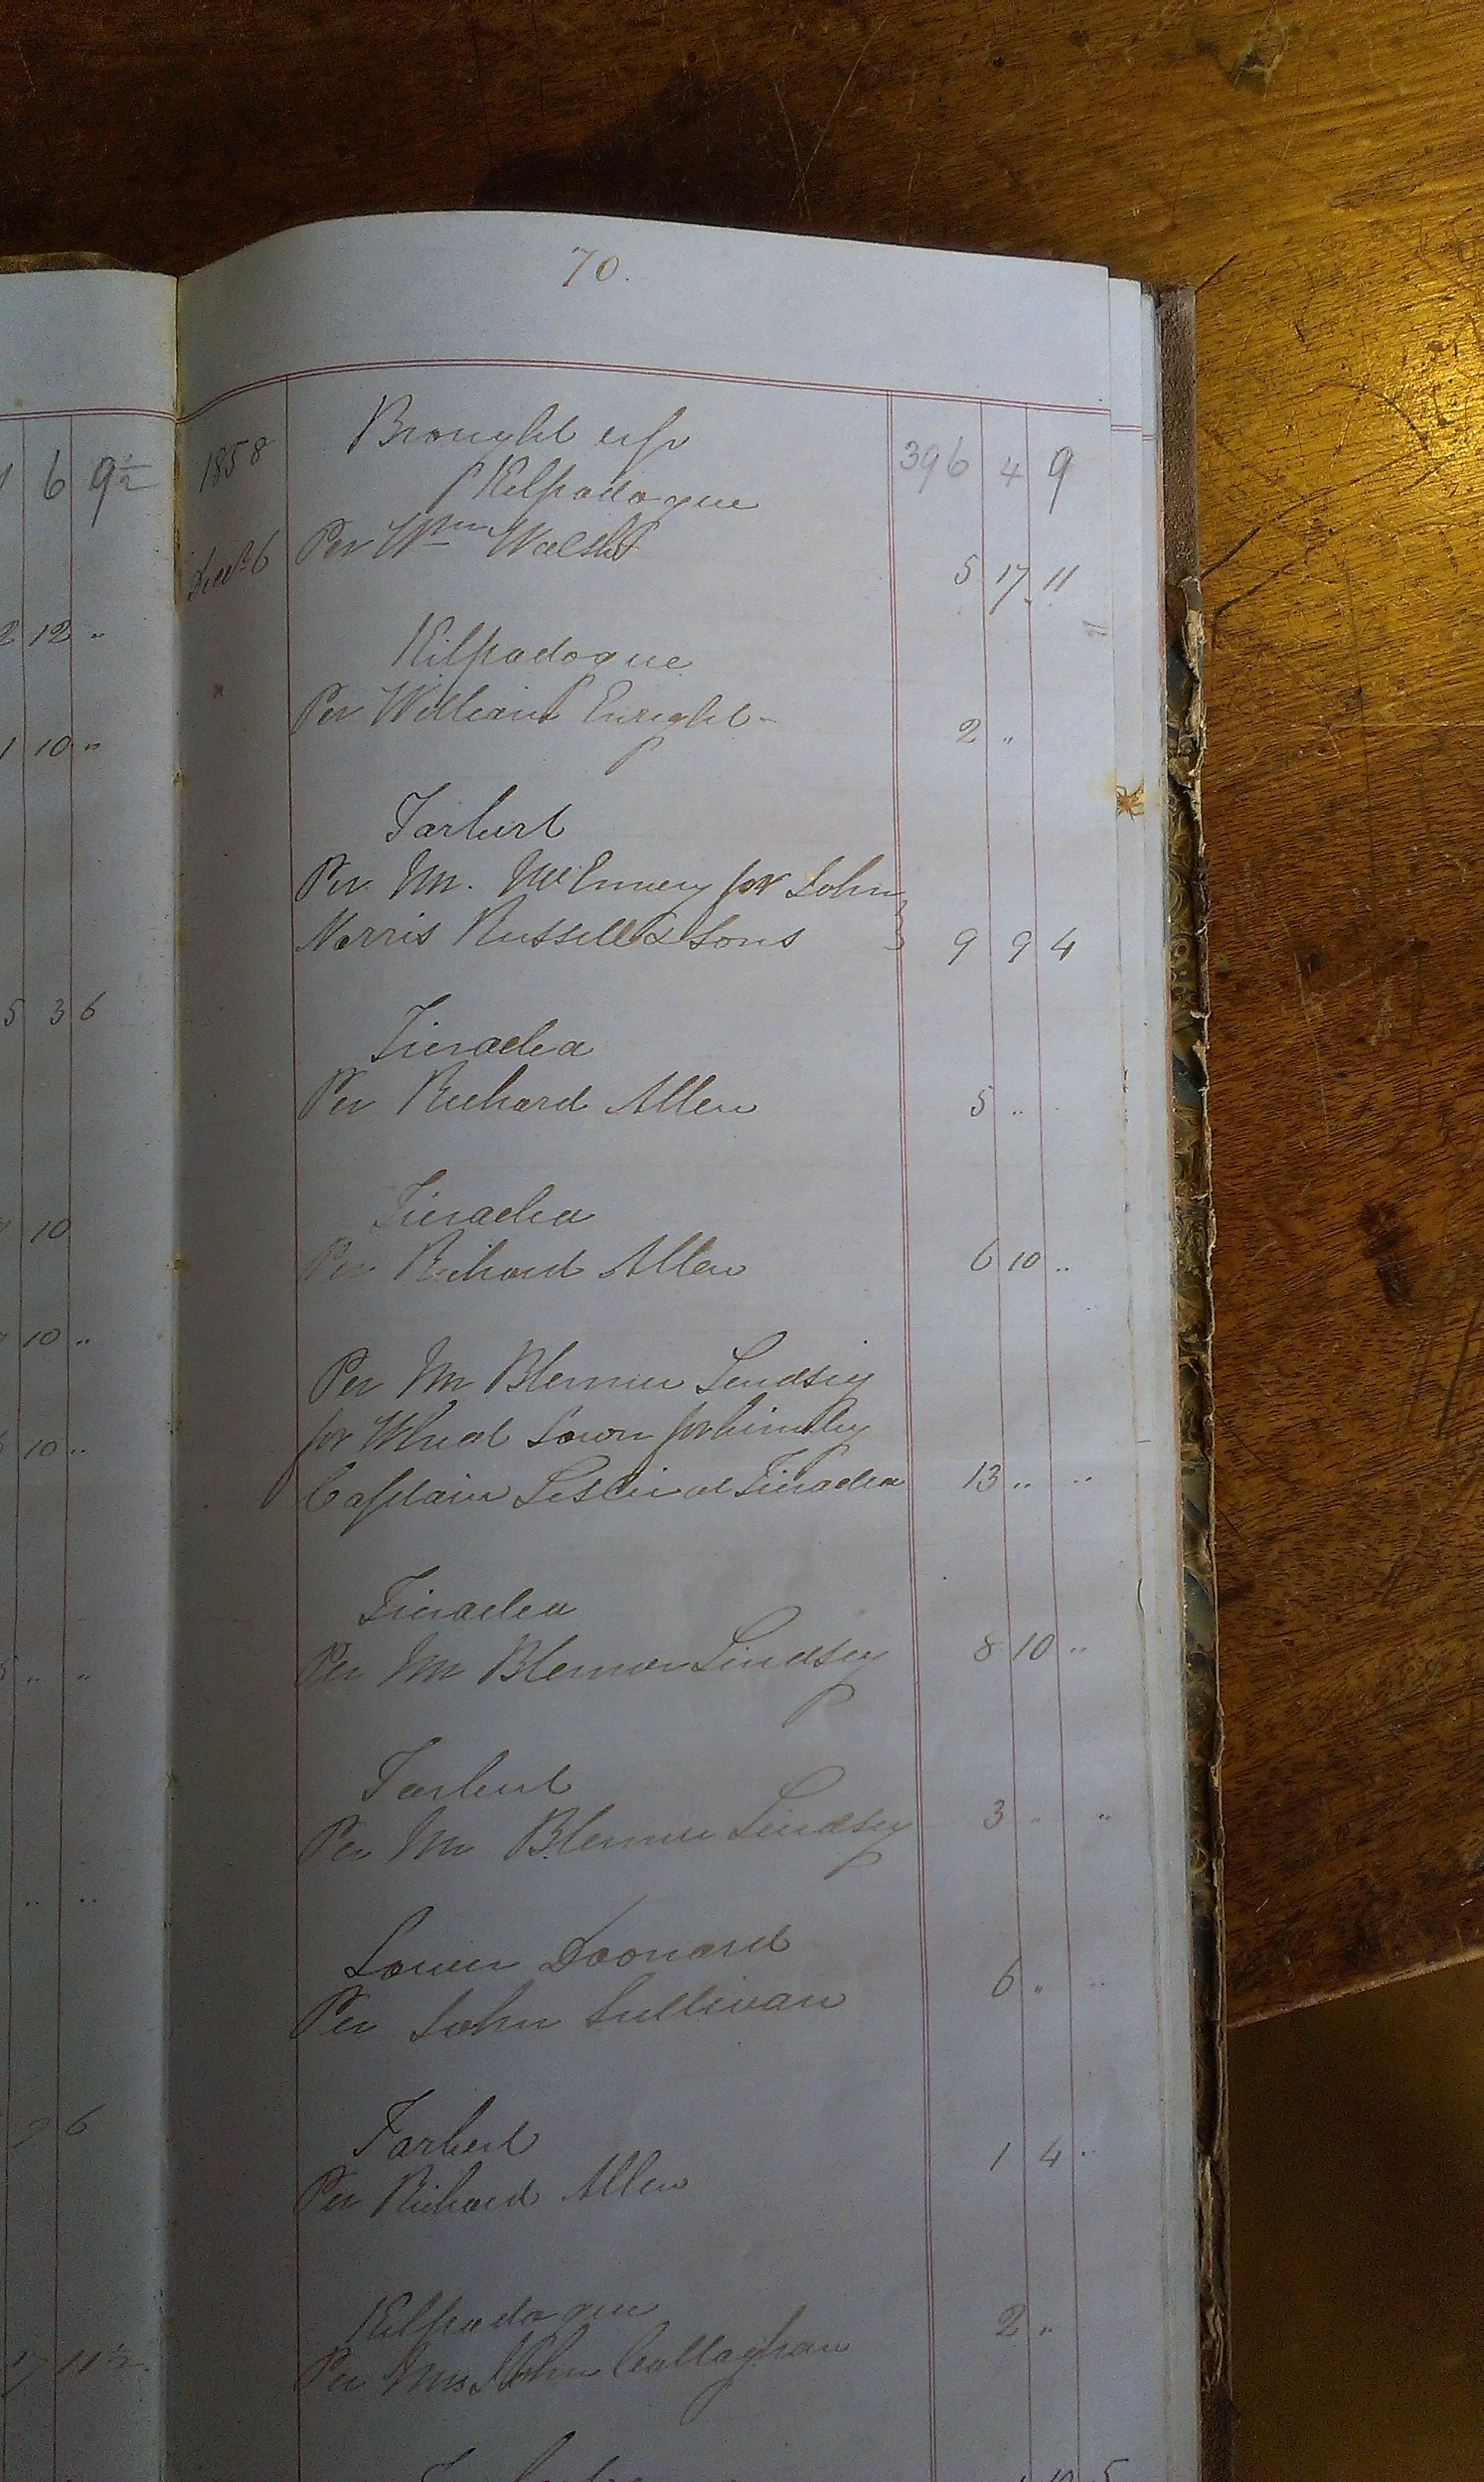 6 9½
2 12 "
1 10 "
5 3 6
10
10 "
10 "
" "
" "
9 6
17 11½
70.
1858 Brought up 396 4 9
Kilpadogue
Decr 6 Per Wm Walsh 5 17 11
Kilpadogue
Per William Enright 2 "
Tarbert
Per Mr. McEnnery for John
Norris Russell & Sons 9 9 4
Tieraclea
Per Richard Allen 5 "
Tieraclea
Per Richard Allen 6 10 "
Per Mr Blenner Lindsey
for Wheat Sown for
Captain Leslie at Tieraclea 13 " "
Tieraclea
Per Mr Blenner Lindsey 8 10 "
Tarbert
Per Mr Blenner Lindsey 3 " "
Lower Doonard
Per John Sullivan 6 " "
Tarbert
Per Richard Allen 1 4 "
Kilpadogue
Per Mrs John Callaghan 2 "